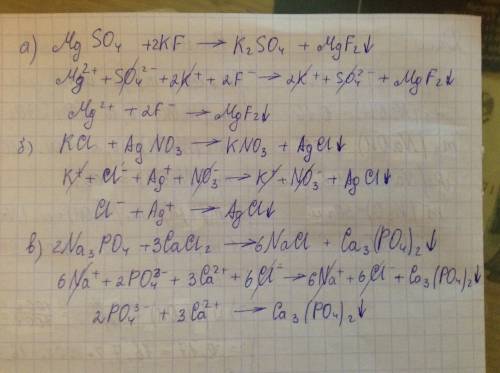 а) MgSO₄ + 2KF → K₂SO₄ + MgF₂↓
Mg²⁺ + SO₄²⁻ + 2K⁺ + 2F⁻ → 2K⁺ + SO₄²⁻ + MgF₂↓
Mg²⁺ + 2F⁻ → MgF₂↓
б) KCl + AgNO₃ → KNO₃ + AgCl↓
K⁺ + Cl⁻ + Ag⁺ + NO₃⁻ → K⁺ + NO₃⁻ + AgCl↓
Cl⁻ + Ag⁺ → AgCl↓
в) 2Na₃PO₄ + 3CaCl₂ → 6NaCl + Ca₃(PO₄)₂↓
6Na⁺ + 2PO₄³⁻ + 3Ca²⁺ + 6Cl⁻ → 6Na⁺ + 6Cl⁻ + Ca₃(PO₄)₂↓
2PO₄³⁻ + 3Ca²⁺ → Ca₃(PO₄)₂↓